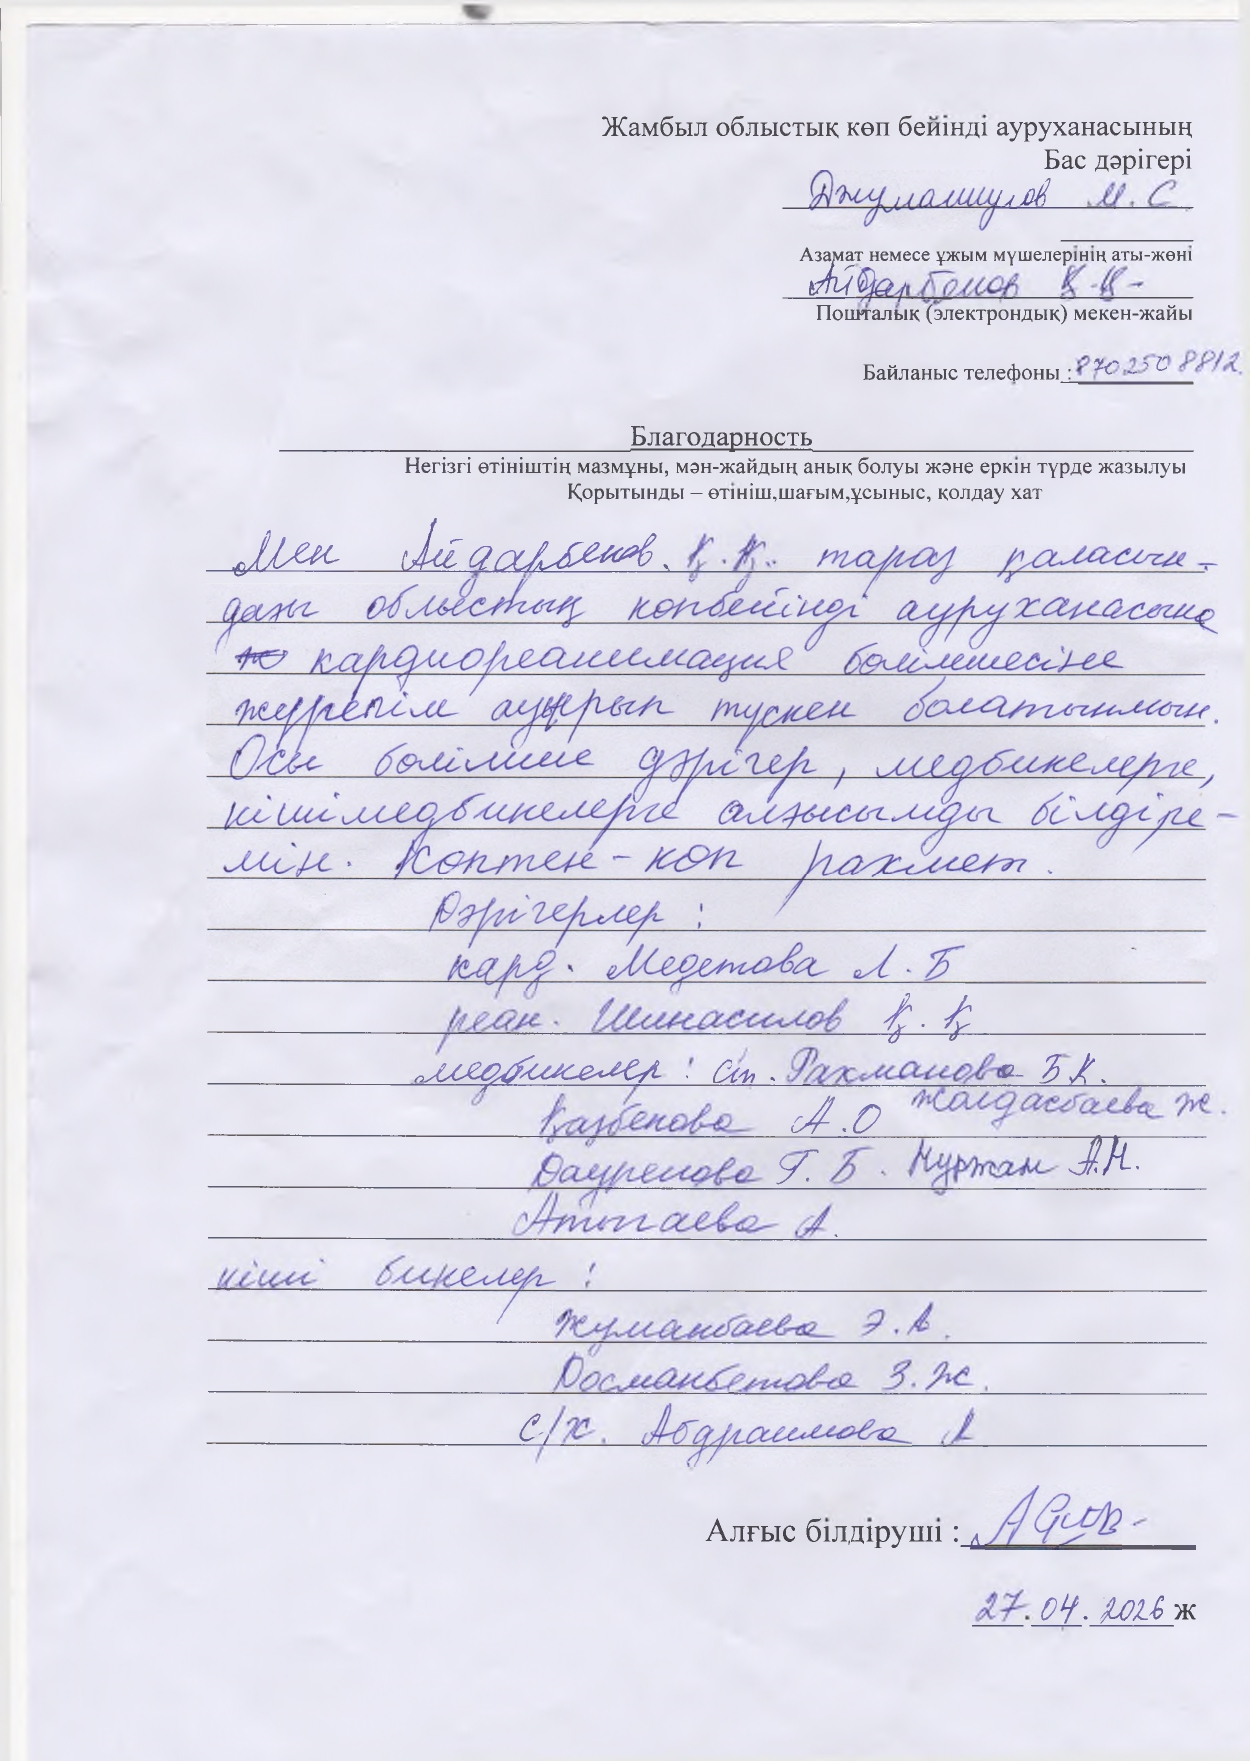 Жамбыл облыстық көп бейінді ауруханасының
Бас дәрігері
Джумашулов М.С
Азамат немесе ұжым мүшелерінің аты-жөні
Айдарбеков Қ.Қ-
Пошталық (электрондық) мекен-жайы
Байланыс телефоны : 8702508812.
Благодарность
Негізгі өтініштің мазмұны, мән-жайдың анық болуы және еркін түрде жазылуы
Қорытынды – өтініш,шағым,ұсыныс, қолдау хат
Мен Айдарбеков. Қ.Қ. тараз қаласын-
дағы облыстық көпбейінді ауруханасына
кардиореанимация бөлімшесіне
жүрегім ауырып түскен болатынмын.
Осы бөлімше дәрігер, медбикелерге,
кішімедбикелерге алғысымды білдіре-
мін. Көптен-көп рахмет.
Дәрігерлер :
кард. Медетова Л.Б
реан. Шинасилов Қ.Қ
медбикелер : ст. Рахманова Б К.
Қазбекова А.О Жолдасбаева Ж.
Дауренова Г.Б. Нуржан А.Н.
Атыгаева А.
кіші бикелер :
Жуманбаева Э.А.
Досманбетова З.Ж.
с/х. Абдраимова А
Алғыс білдіруші :
27.04.2026 ж